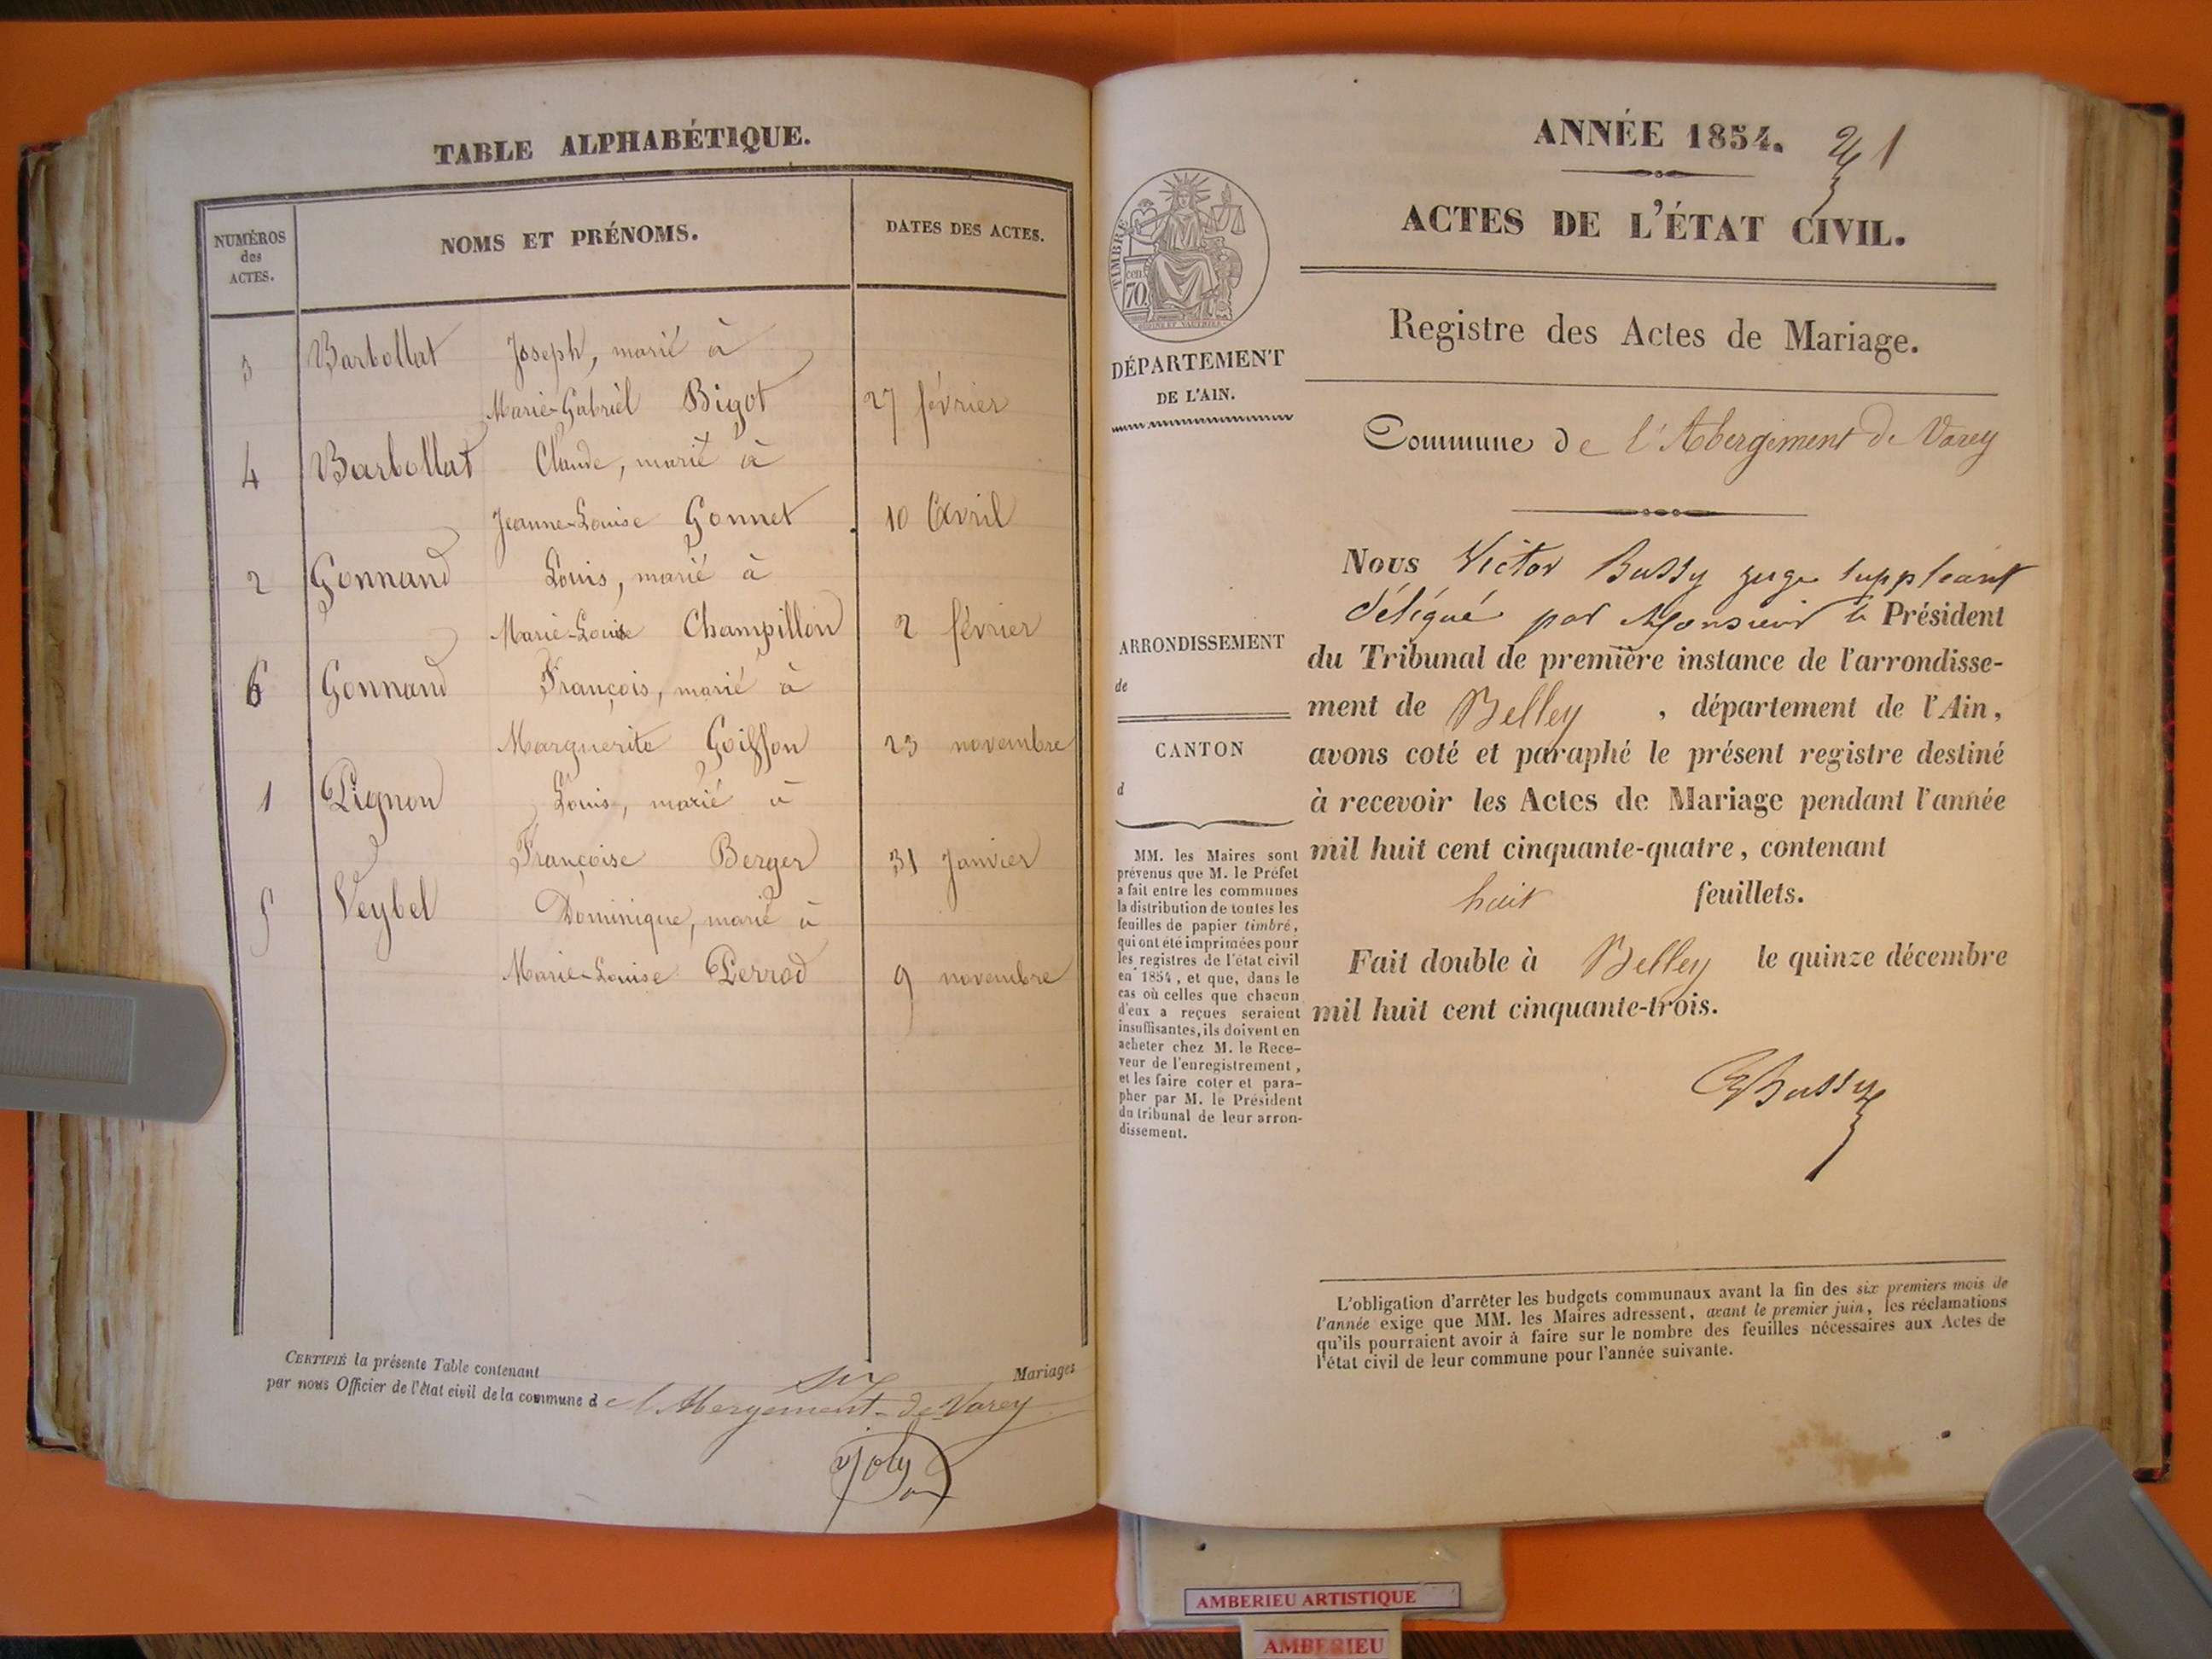 TABLE ALPHABÉTIQUE.
NUMÉROS
des
ACTES.
NOMS ET PRÉNOMS.
DATES DES ACTES.
3 Barbollat Joseph, marié à
Marie-Gabriel Bigot 27 février
4 Barbollat Claude, marié à
Jeanne-Louise Gonnet 10 Avril
2 Gonnand Louis, marié à
Marie-Louise Champillon 2 février
6 Gonnand François, marié à
Marguerite Goiffon 23 novembre
1 Pignon Louis, marié à
Françoise Berger 31 Janvier
5 Veybel Dominique, marié à
Marie-Louise Perrod 9 novembre
CERTIFIÉ la présente Table contenant six Mariages
par nous Officier de l'état civil de la commune d e l'Abergement-de-Varey
Joly
ANNÉE 1854. 1
ACTES DE L'ÉTAT CIVIL.
TIMBRE
cen.
70.
DÉPARTEMENT
DE L'AIN.
Registre des Actes de Mariage.
Commune de l'Abergement de Varey
ARRONDISSEMENT
de
CANTON
d
MM. les Maires sont
prévenus que M. le Préfet
a fait entre les communes
la distribution de toutes les
feuilles de papier timbré,
qui ont été imprimées pour
les registres de l'état civil
en 1854, et que, dans le
cas où celles que chacun
d'eux a reçues seraient
insuffisantes, ils doivent en
acheter chez M. le Rece-
veur de l'enregistrement,
et les faire coter et para-
pher par M. le Président
du tribunal de leur arron-
dissement.
Nous Victor Bussy juge suppléant
délégué par Monsieur le Président
du Tribunal de première instance de l'arrondisse-
ment de Belley , département de l'Ain,
avons coté et paraphé le présent registre destiné
à recevoir les Actes de Mariage pendant l'année
mil huit cent cinquante-quatre, contenant
huit feuillets.
Fait double à Belley le quinze décembre
mil huit cent cinquante-trois.
Bussy
L'obligation d'arrêter les budgets communaux avant la fin des six premiers mois de
l'année exige que MM. les Maires adressent, avant le premier juin, les réclamations
qu'ils pourraient avoir à faire sur le nombre des feuilles nécessaires aux Actes de
l'état civil de leur commune pour l'année suivante.
AMBERIEU ARTISTIQUE
AMBERIEU